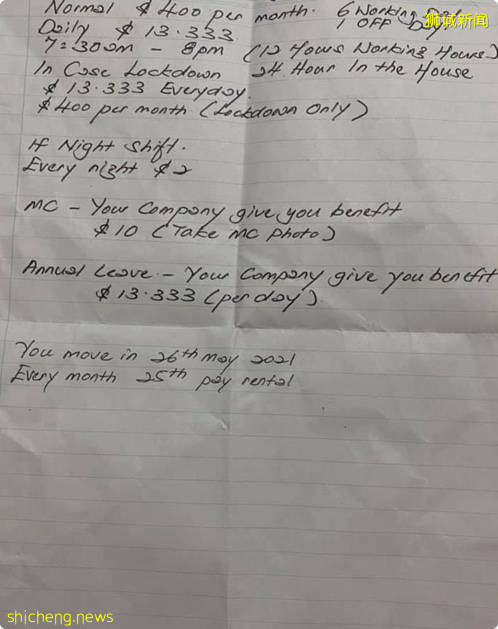 Normal $400 per month. 6 Working Day
1 OFF Day
Daily $13.333
7:30am - 8pm (12 Hours Working Hours)
In Case Lockdown 24 Hour In the House
$13.333 Everyday
$400 per month. (Lockdown Only)
If Night Shift.
Every night $2
MC - Your Company give you benefit
$10 (Take MC photo)
Annual Leave - Your Company give you benefit
$13.333 (per day)
You move in 26th may 2021
Every month 25th pay rental
狮城新闻
shicheng.news